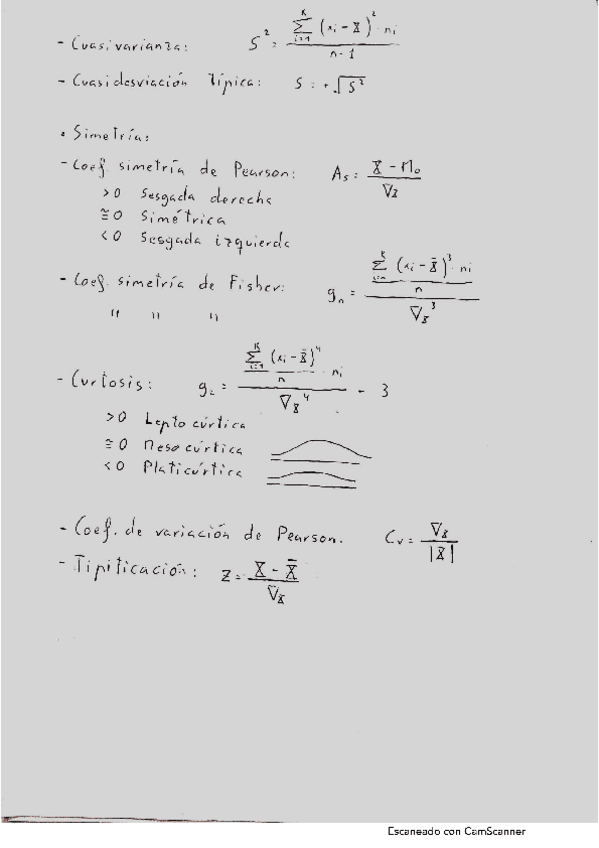 - Cuasivarianza: S² = Σ_{i=1}^{K} (xi - x̄)² · ni / n-1
- Cuasidesviación Típica: S = +√S²
• Simetría:
- Coef. simetría de Pearson: As = x̄ - Mo / ∇x
>0 Sesgada derecha
≅0 Simétrica
<0 Sesgada izquierda
- Coef. simetría de Fisher: g₁ = Σ_{i=1}^{K} (xi - x̄)³ · ni / n / ∇x³
" " "
- Curtosis: g₂ = Σ_{i=1}^{K} (xi - x̄)⁴ · ni / n / ∇x⁴ - 3
>0 Leptocúrtica
≅0 Mesocúrtica
<0 Platicúrtica
- Coef. de variación de Pearson. Cv = ∇x / |x̄|
- Tipificación: z = X - X̄ / ∇x
Escaneado con CamScanner